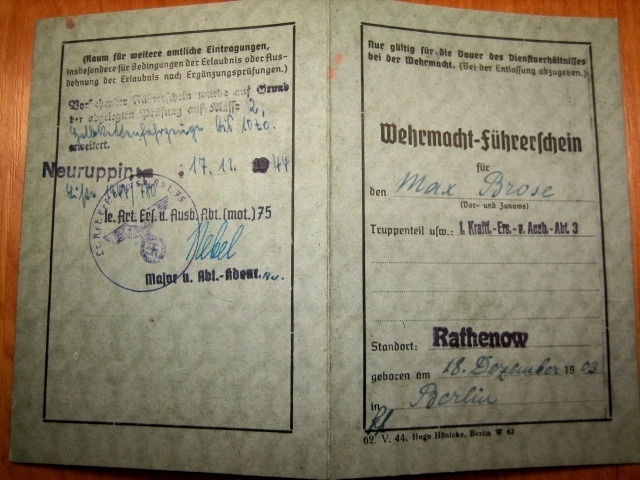 (Raum für weitere amtliche Eintragungen,
insbesondere für Bedingungen der Erlaubnis oder Aus-
dehnung der Erlaubnis nach Ergänzungsprüfungen.)
Vorstehender Führerschein wurde auf Grund
der abgelegten Prüfung auf Klasse 2,
bis 10to.
erweitert.
Neuruppin 17.12. 1944
le. Art. Ers. u. Ausb. Abt. (mot.) 75
Nebel
Major u. Abt.-Kdeur.
Nur gültig für die Dauer des Dienstverhältnisses
bei der Wehrmacht. (Bei der Entlassung abzugeben.)
Wehrmacht-Führerschein
für
den Max Brose
(Vor- und Zuname)
Truppenteil usw.: 1. Kraftf.-Ers.-u. Ausb.-Abt. 3
Standort: Rathenow
geboren am 18. Dezember 1903
in Berlin
62. V. 44. Hugo Hänicke, Berlin W 62